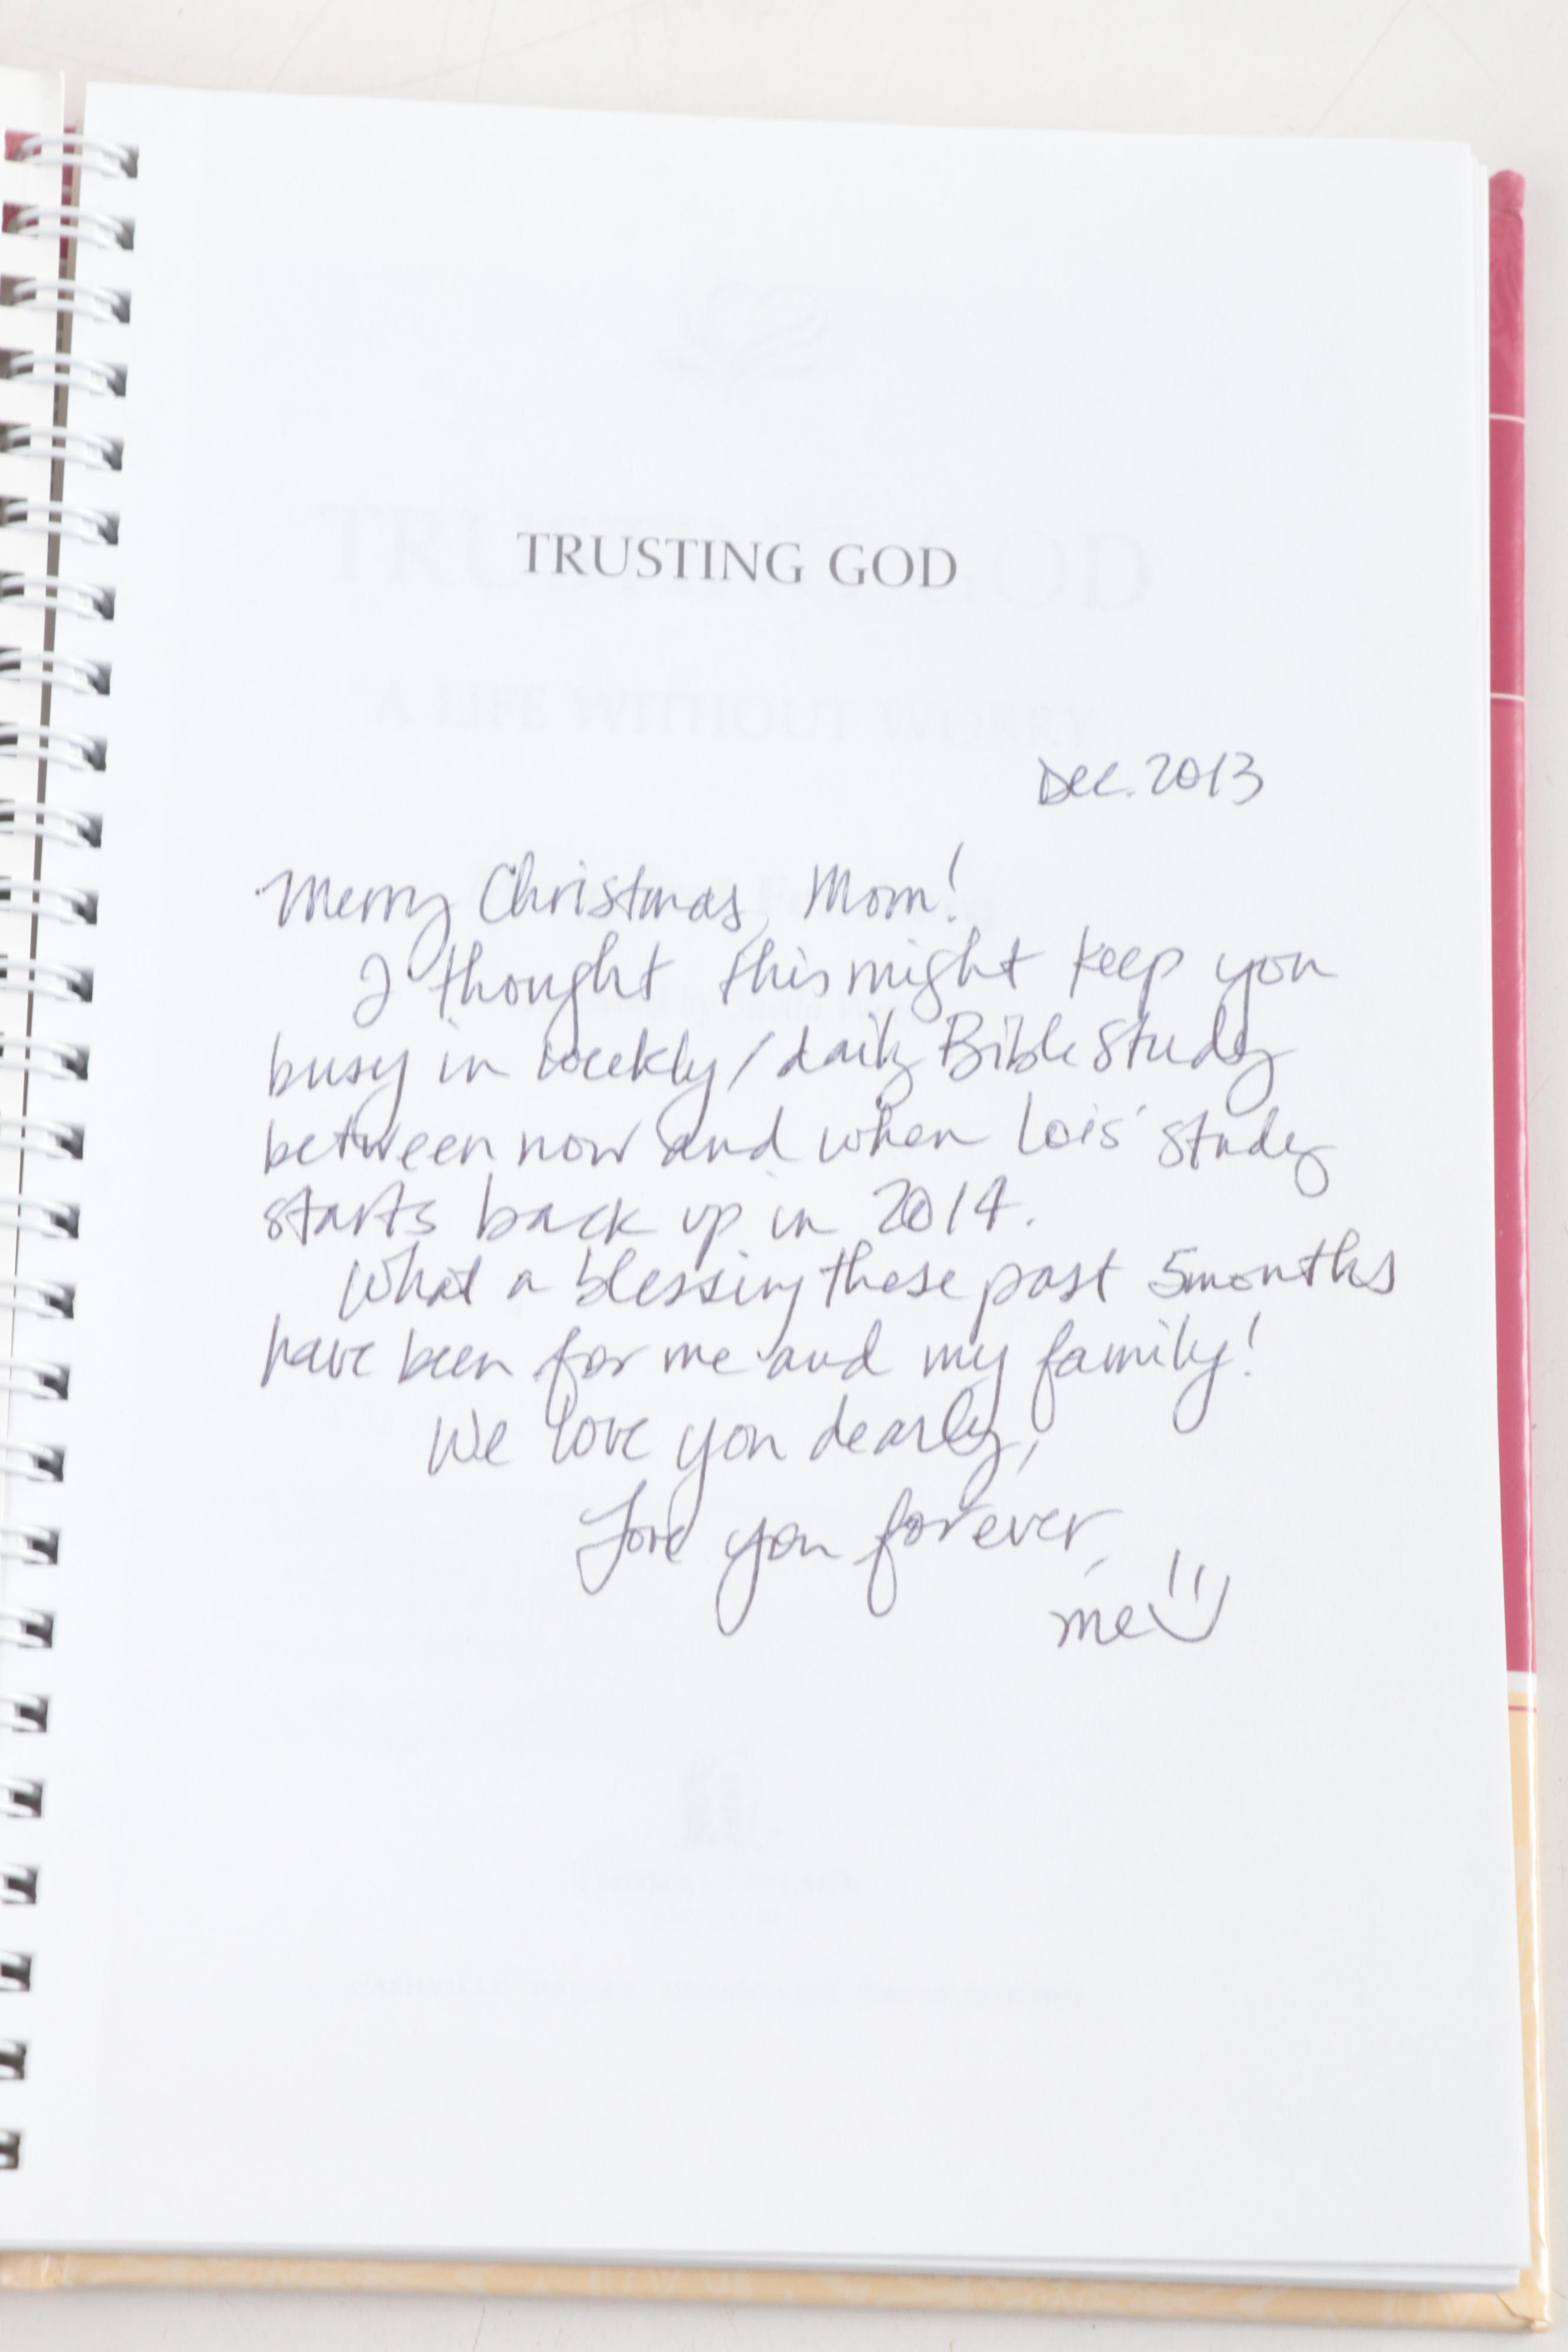 TRUSTING GOD
TRUSTING GOD
A LIFE WITHOUT WORRY
Dec. 2013
Merry Christmas, Mom!
I thought this might keep you
busy in weekly/daily Bible study
between now and when Lois' study
starts back up in 2014.
What a blessing these past 5 months
have been for me and my family!
We love you dearly,
Love you forever,
me
NASHVILLE